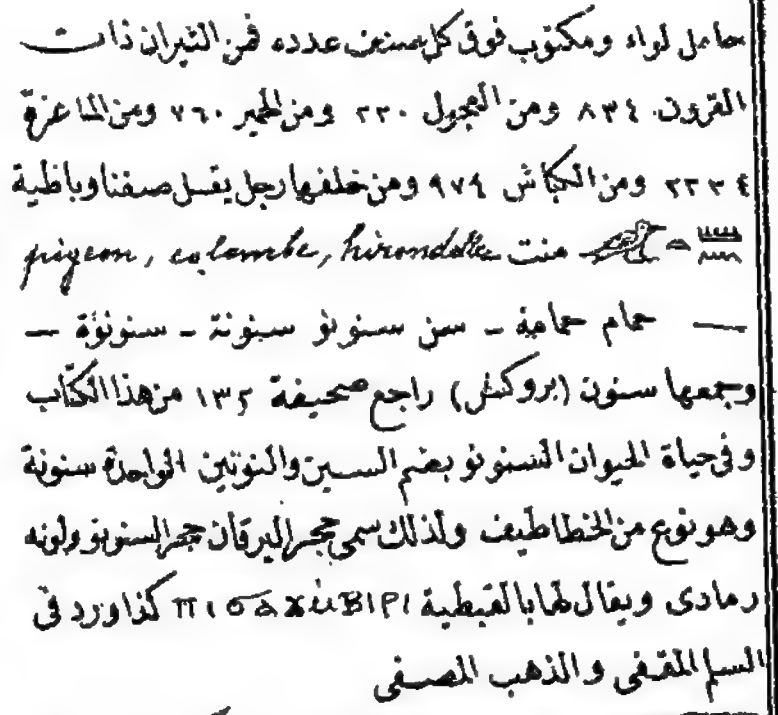 حامل لواء ومكتوب فوق كل صنف عدده فمن الثيران ذات
القرون ٨٣٤ ومن العجول ٢٢٠ ومن الحمير ٧٦٠ ومن الماعزة
٢٢٣٤ ومن الكباش ٩٧٤ ومن خلفها رجل يقسل صفنا وباظية
منت pigeon, colombe, hirondelle
— حمام حمامة - سن سنونو سنونة - سنونوة —
وجمعها سنون (بروكش) راجع صحيفة ١٣٢ من هذا الكتاب
وفى حياة الحيوان السنونو بضم السين والنونين الواحدة سنونة
وهو نوع من الخطاطيف ولذلك سمى حجر اليرقان حجر السنونو ولونه
رمادى ويقال لها بالقبطية ⲡⲓϭⲁϫⲓⲃⲓⲣⲓ كذا ورد فى
السلم المقفى والذهب المصفى